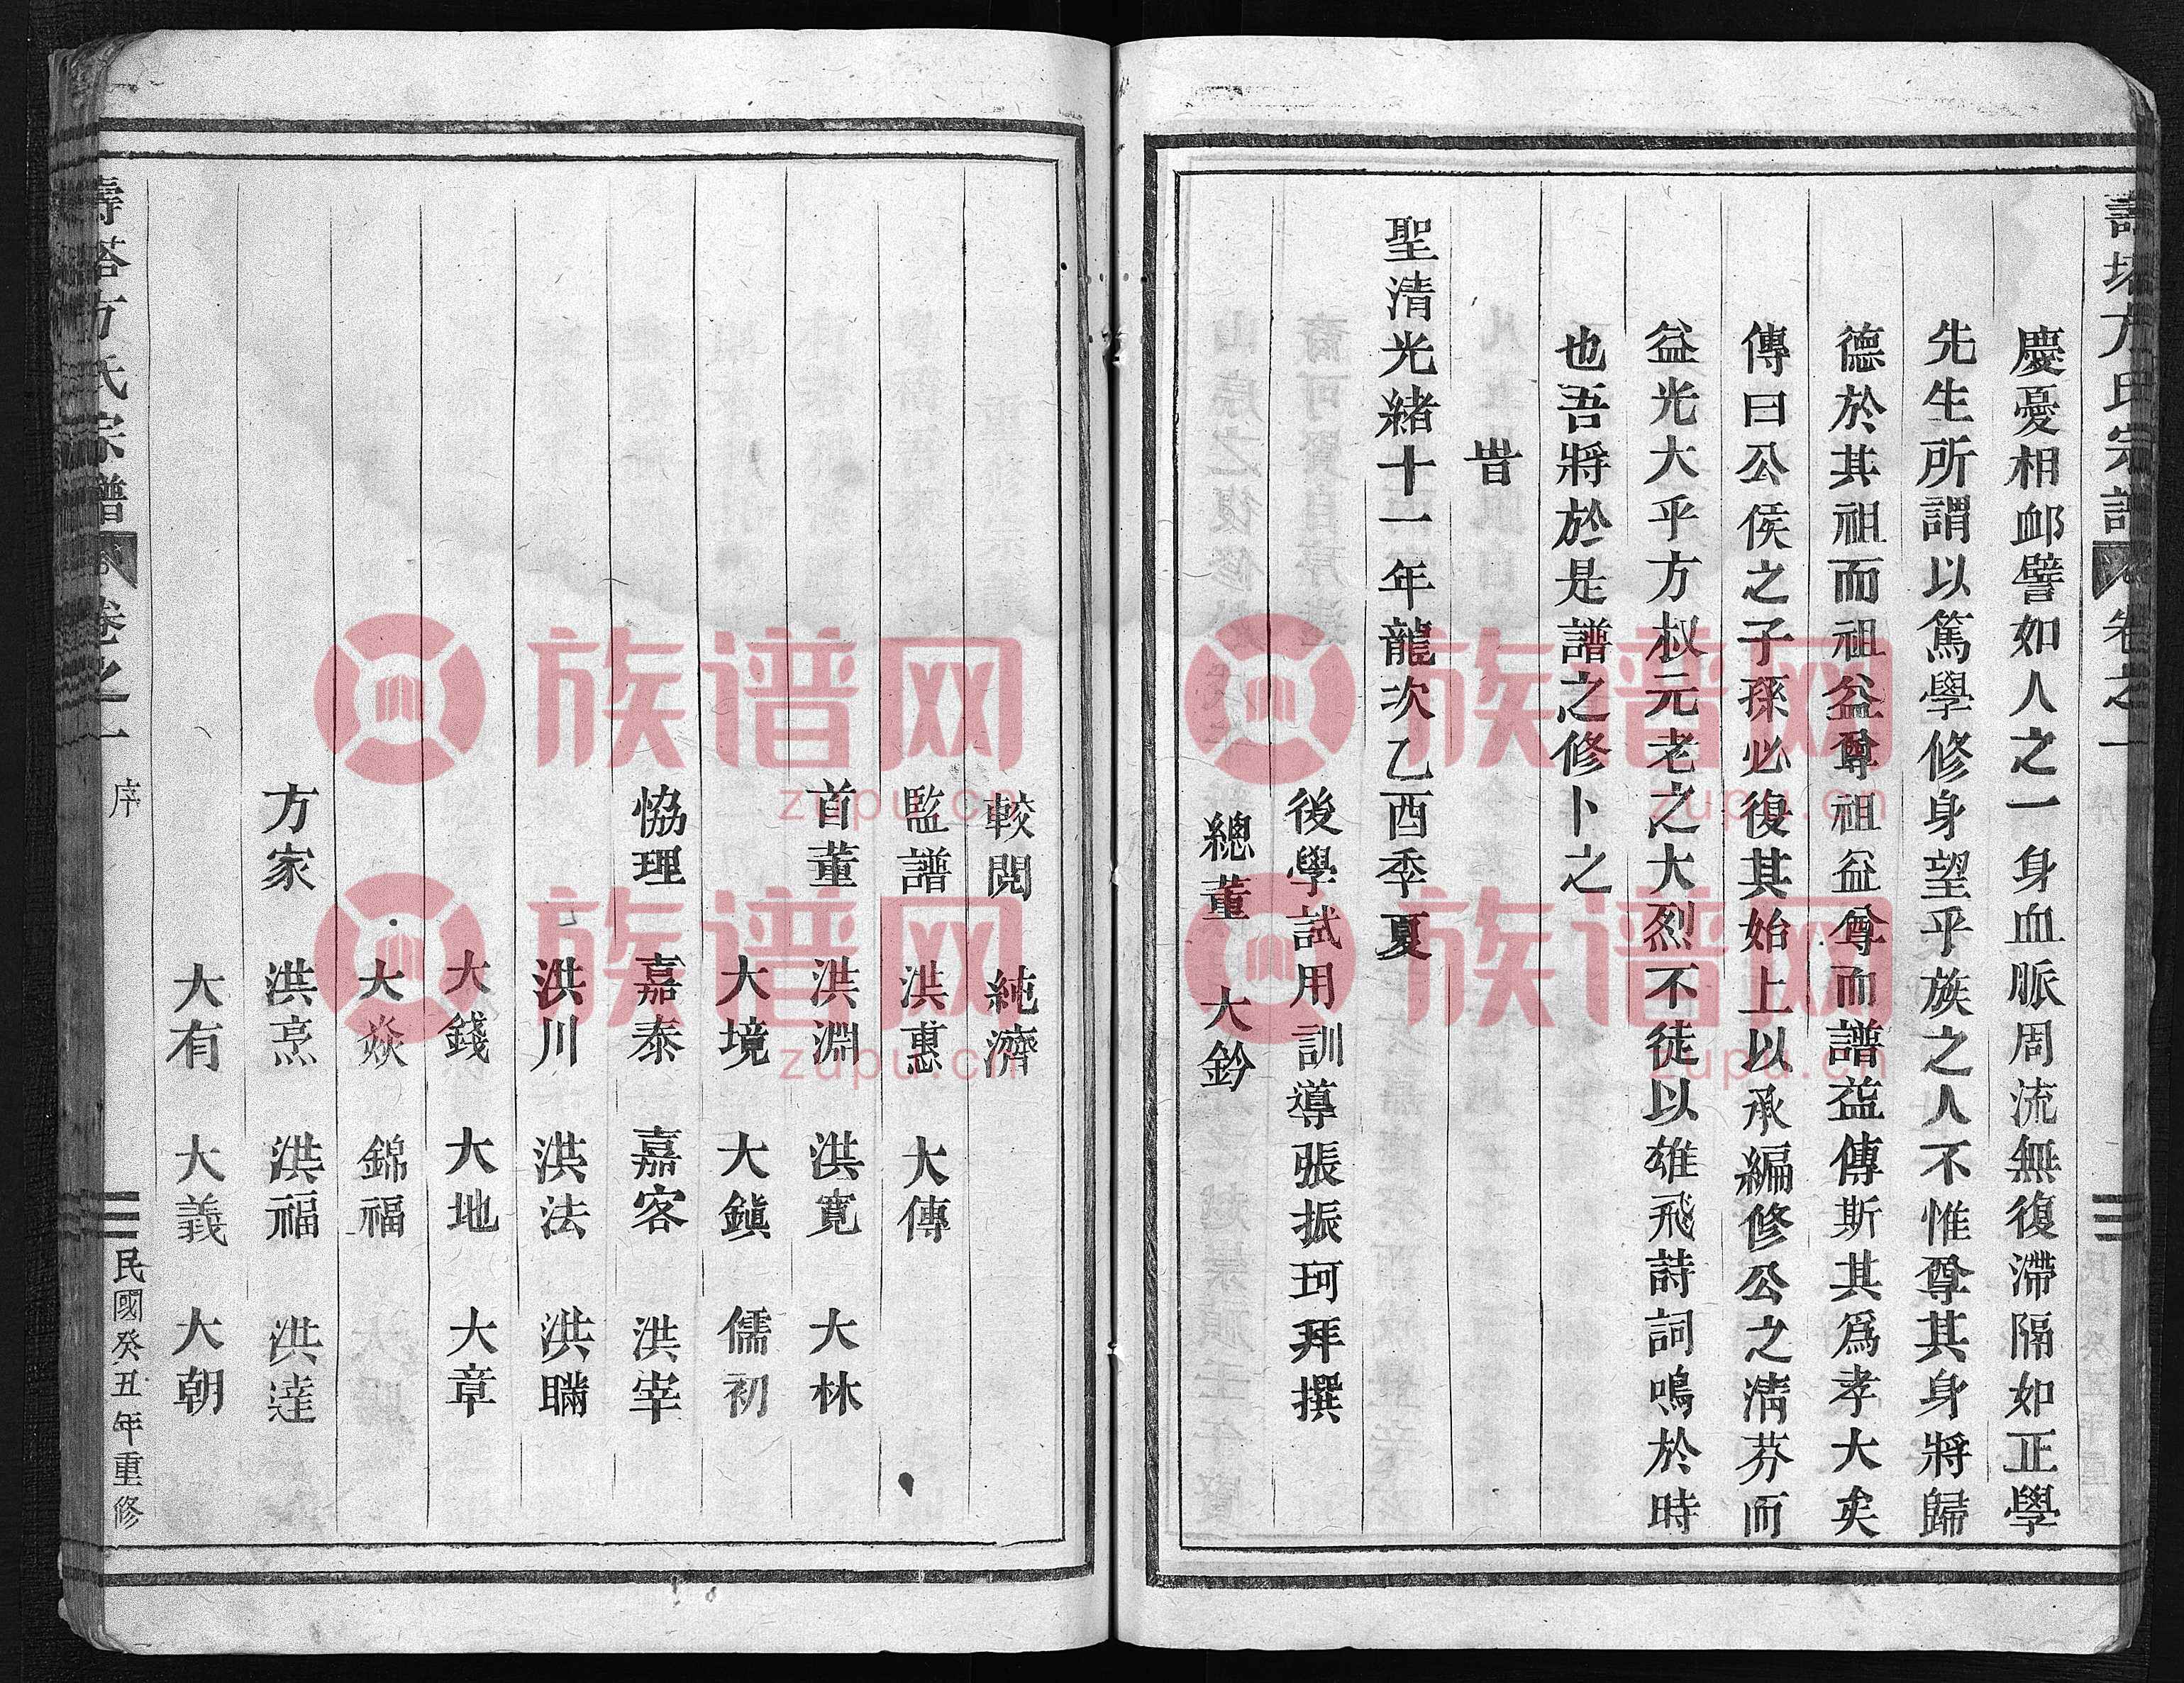 慶憂相卹譬如人之一身血脈周流無復滯隔如正學
先生所謂以篤學修身望乎族之人不惟尊其身將歸
德於其祖而祖益尊祖益尊而譜益傳斯其為孝大矣
傳曰公侯之子孫必復其始上以承編修公之清芬而
益光大乎方叔元老之大烈不徒以雄飛詩詞鳴於時
也吾將於是譜之修卜之
旹
聖清光緒十一年龍次乙酉季夏
後學試用訓導張振珂拜撰
總董 大鈐
較閱 純濟
監譜 洪惠 大傳
首董 洪淵 洪寬 大林
大境 大鎭 儒初
恊理 嘉泰 嘉客 洪宰
洪川 洪法 洪瞞
大錢 大地 大章
大焱 錦福
方家 洪烹 洪福 洪達
大有 大義 大朝
方氏宗譜 卷之一 序 民國癸丑年重修
族谱网
zupu.cn
族谱网
zupu.cn
族谱网
zupu.cn
族谱网
zupu.cn